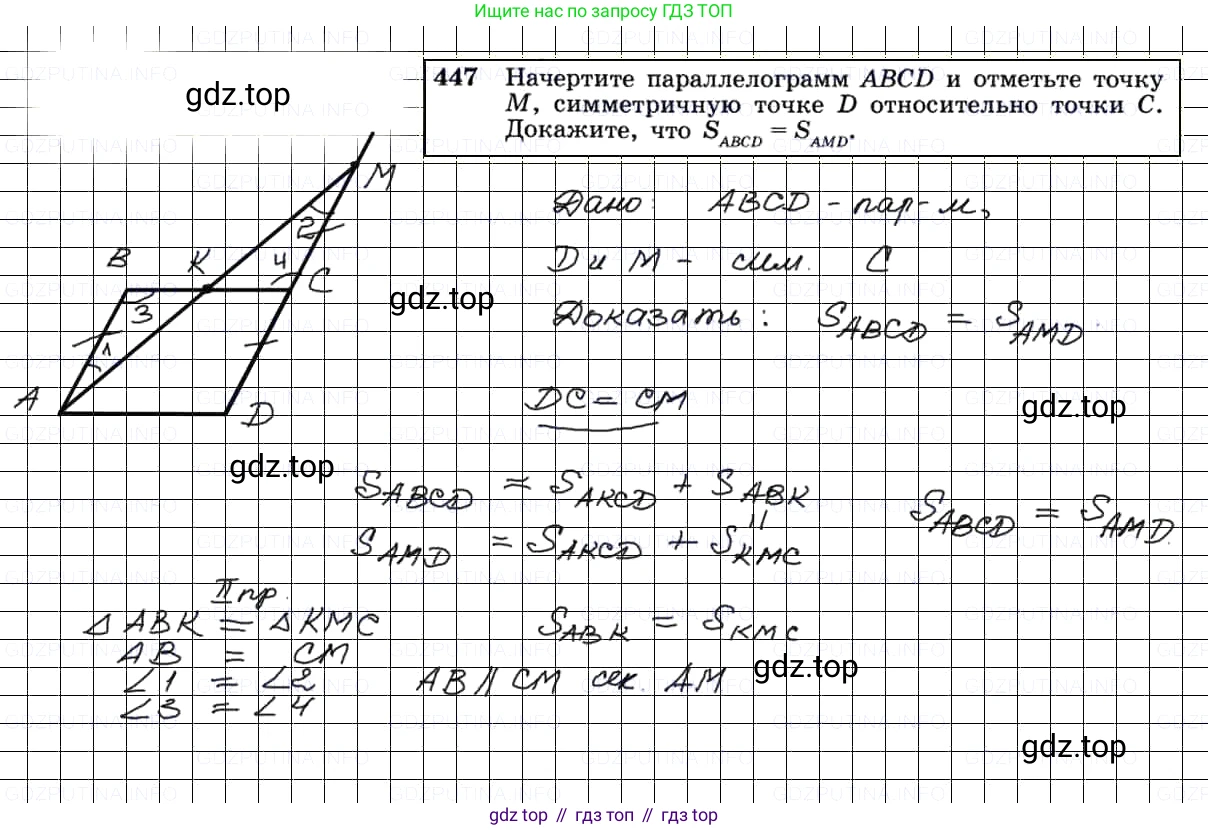 Ищите нас по запросу ГДЗ ТОП
gdz.top
447 Начертите параллелограмм ABCD и отметьте точку
M, симметричную точке D относительно точки C.
Докажите, что S_ABCD = S_AMD.
M
2
B K 4 C
3
1
A D
gdz.top
Дано: ABCD - пар-м,
D и M - сим. C
Доказать: S_ABCD = S_AMD.
DC = CM
gdz.top
gdz.top
S_ABCD = S_AKCD + S_ABK
||
S_AMD = S_AKCD + S_KMC
S_ABCD = S_AMD.
II пр.
△ ABK = △ KMC
AB = CM
∠1 = ∠2
∠3 = ∠4
S_ABK = S_KMC
AB || CM сек. AM
gdz.top
gdz.top
gdz top // гдз топ // gdz top
GDZPUTINA.INFO